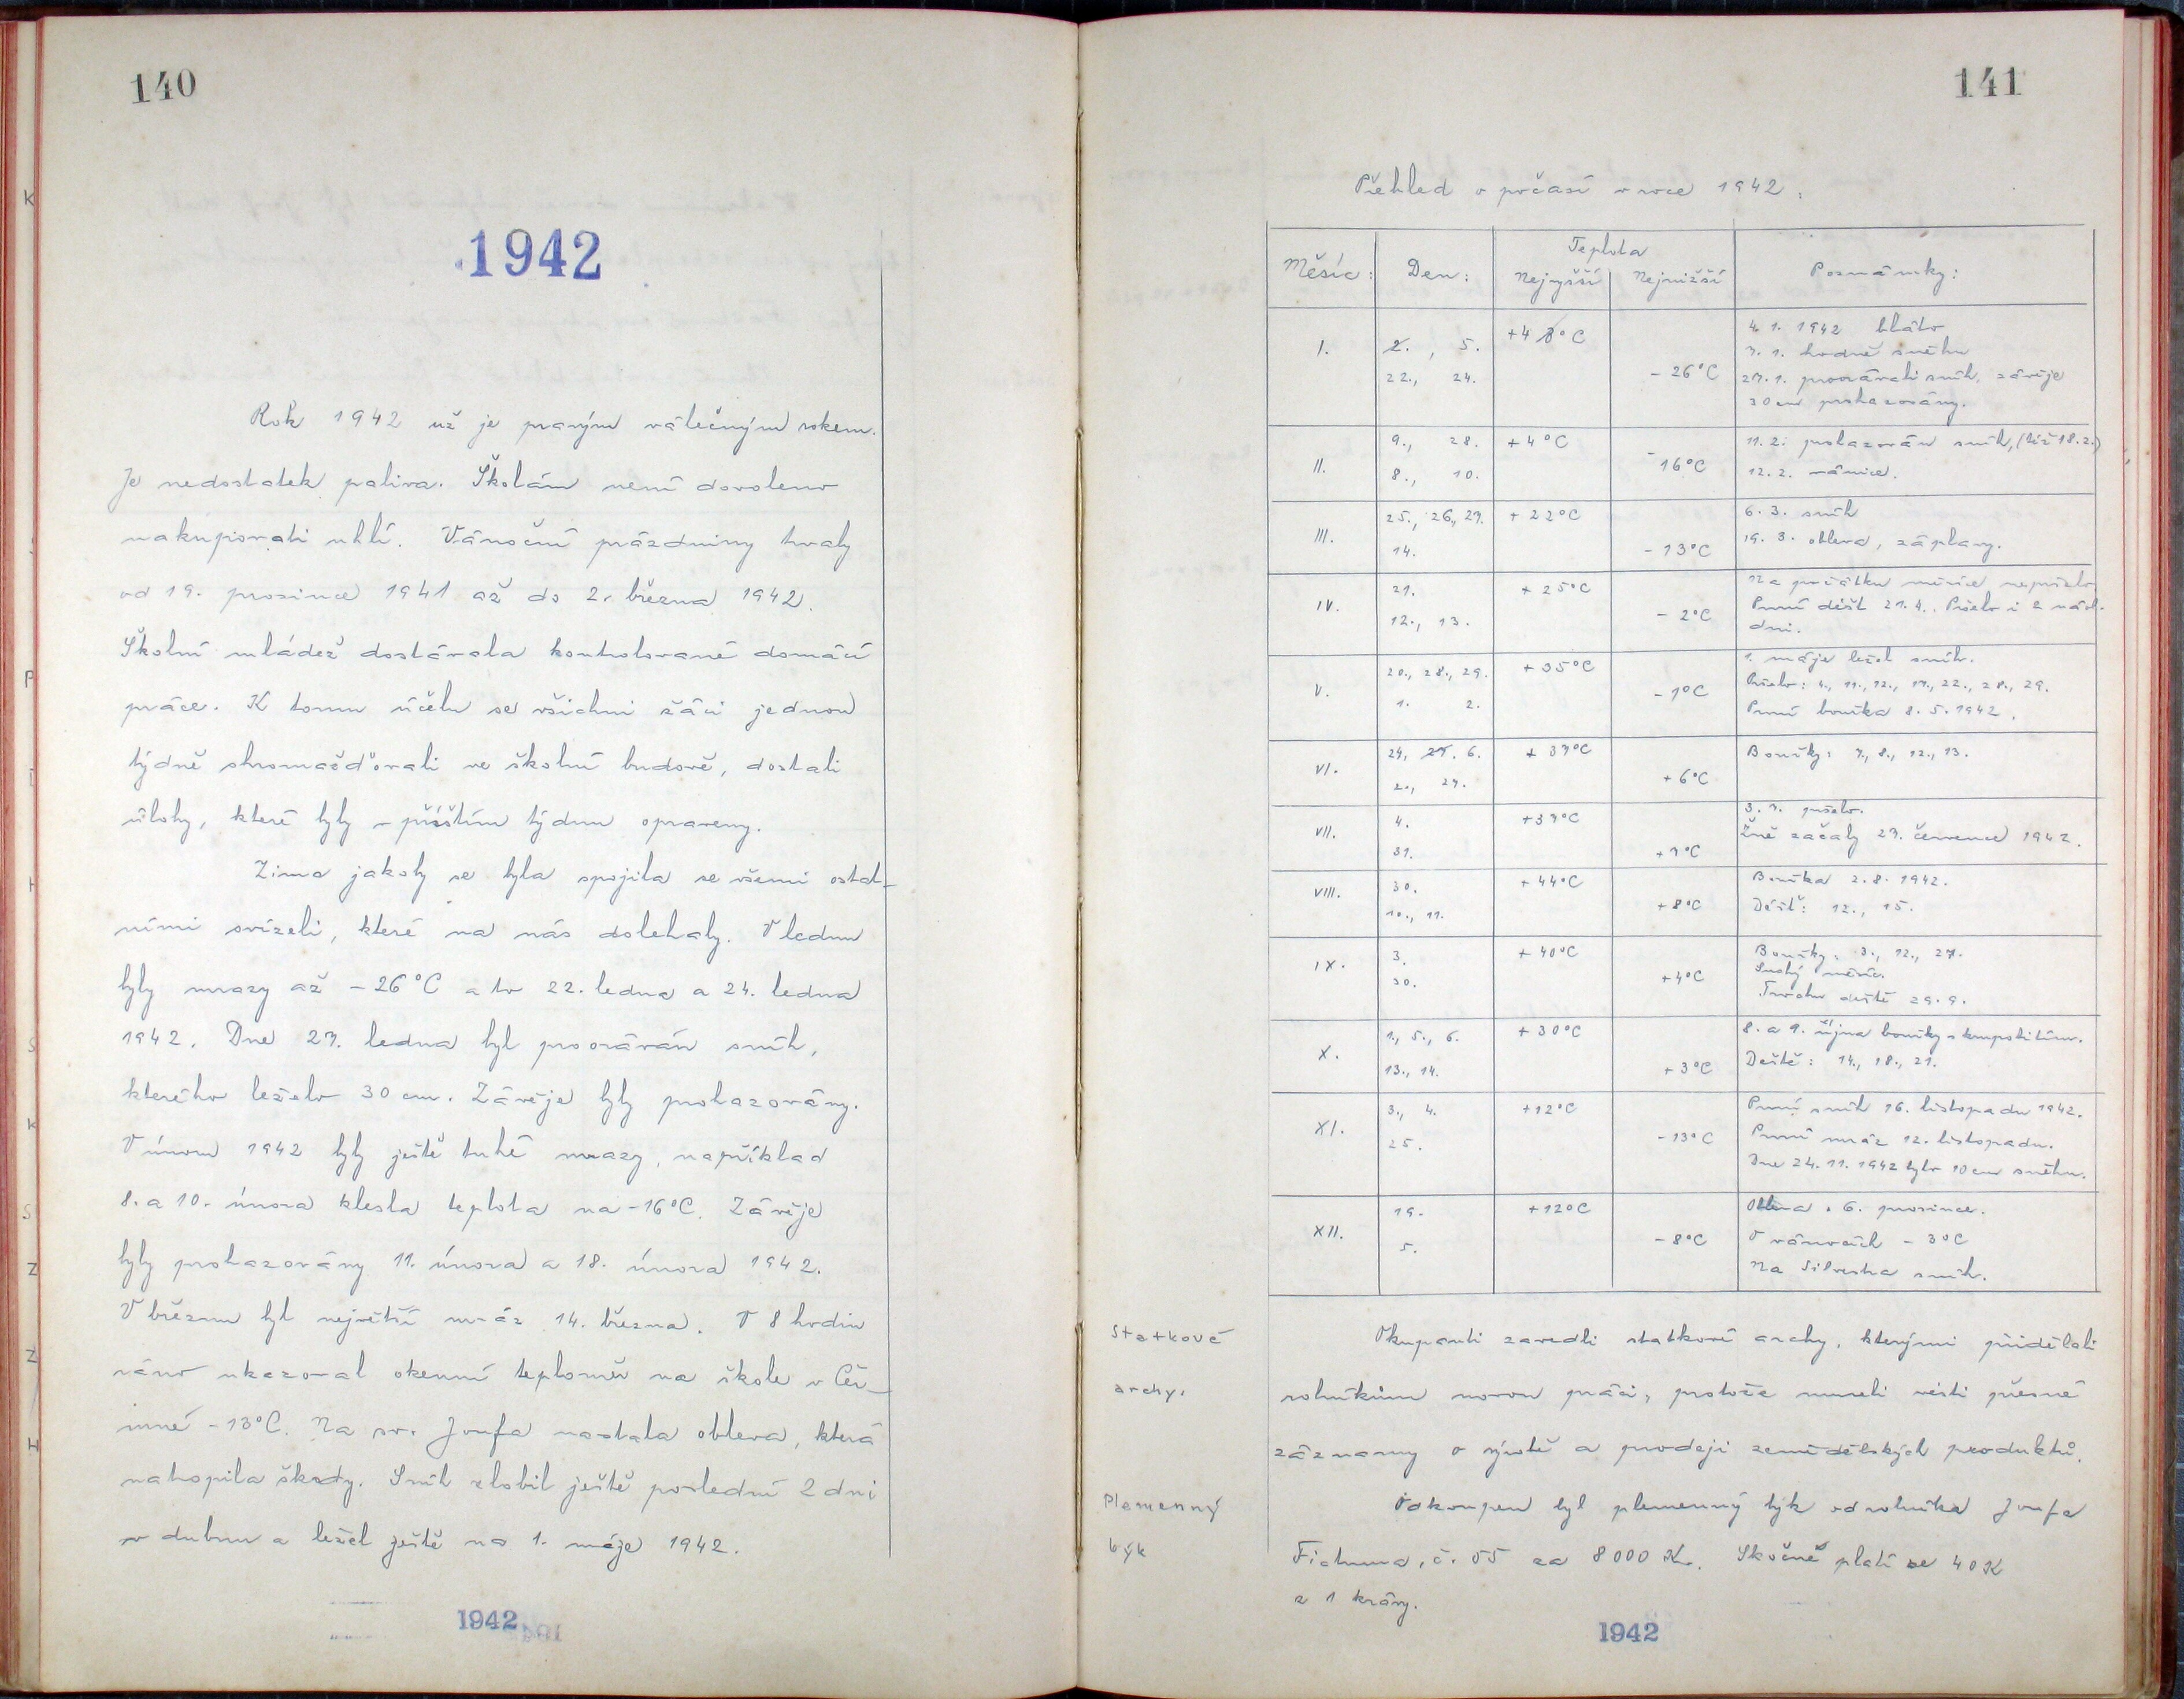 140
1942
Rok 1942 už je pravým válečným rokem.
Je nedostatek paliva. Školám není dovoleno
nakupovati uhlí. Vánoční prázdniny trvaly
od 19. prosince 1941 až do 2. března 1942.
Školní mládež dostávala kontrolované domácí
práce. K tomu účelu se všichni žáci jednou
týdně shromažďovali ve školní budově, dostali
úlohy, které byly v příštím týdnu opraveny.
Zima jakoby se byla spojila se všemi ostat-
ními svízeli, které na nás dolehaly. V lednu
byly mrazy až -26°C a to 22. ledna a 24. ledna
1942. Dne 27. ledna byl prooráván sníh,
kterého leželo 30 cm. Závěje byly prohazovány.
V únoru 1942 byly ještě tuhé mrazy, například
8. a 10. února klesla teplota na -16°C. Závěje
byly prohazovány 11. února a 18. února 1942.
V březnu byl největší mráz 14. března. V 8 hodin
ráno ukazoval okenní teploměr na škole v Čer-
mné -13°C. Na sv. Josefa nastala obleva, která
natropila škody. Sníh zlobil ještě poslední 2 dni
v dubnu a ležel ještě na 1. máje 1942.
1942
141
Přehled o počasí v roce 1942:
Měsíc: Den: Teplota Poznámky:
Nejvyšší Nejnižší
I. 2., 5. +4 °C 4. 1. 1942 bláto
7. 1. hodně sněhu
22., 24. -26°C 27. 1. prooráváti sníh, závěje
30 cm prohazovány.
II. 9., 28. +4°C 11. 2. prohazován sníh, (též 18. 2.)
8., 10. -16°C 12. 2. vánice.
III. 25., 26., 27. +22°C 6. 3. sníh
14. -13°C 19. 3. obleva, záplavy.
IV. 21. +25°C Na počátku měsíce nepršelo.
12., 13. -2°C První déšť 21. 4. Pršelo i 2 násl.
dni.
V. 20., 28., 29. +35°C 1. máje ležel sníh.
1. 2. -1°C Pršelo: 4., 11., 12., 17., 22., 28., 29.
První bouřka 8. 5. 1942.
VI. 24, 25. 6. +37°C Bouřky: 7., 8., 12., 13.
2., 27. +6°C
VII. 4. +37°C 3. 7. pršelo.
31. +7°C Žně začaly 23. července 1942.
VIII. 30. +44°C Bouřka 2. 8. 1942.
10., 11. +8°C Déšť: 12., 15.
IX. 3. +40°C Bouřky: 3., 12., 27.
30. +4°C Suchý měsíc.
Trochu deště 29. 9.
X. 1., 5., 6. +30°C 8. a 9. října bouřky s krupobitím.
13., 14. +3°C Deště: 14., 18., 21.
XI. 3., 4. +12°C První sníh 16. listopadu 1942.
25. -13°C První mráz 12. listopadu.
Dne 24. 11. 1942 bylo 10 cm sněhu.
XII. 19. +12°C Obleva. 6. prosince.
5. -8°C O vánocích -3°C
Na Silvestra sníh.
Statkové
archy.
Okupanti zavedli statkové archy, kterými přidělali
rolníkům novou práci, protože museli vésti přesné
záznamy o výrobě a prodeji zemědělských produktů.
Plemenný
býk
Odkoupen byl plemenný býk od rolníka Josefa
č. 55 za 8000 K. Skočné platí se 40 K
z 1 krávy.
1942